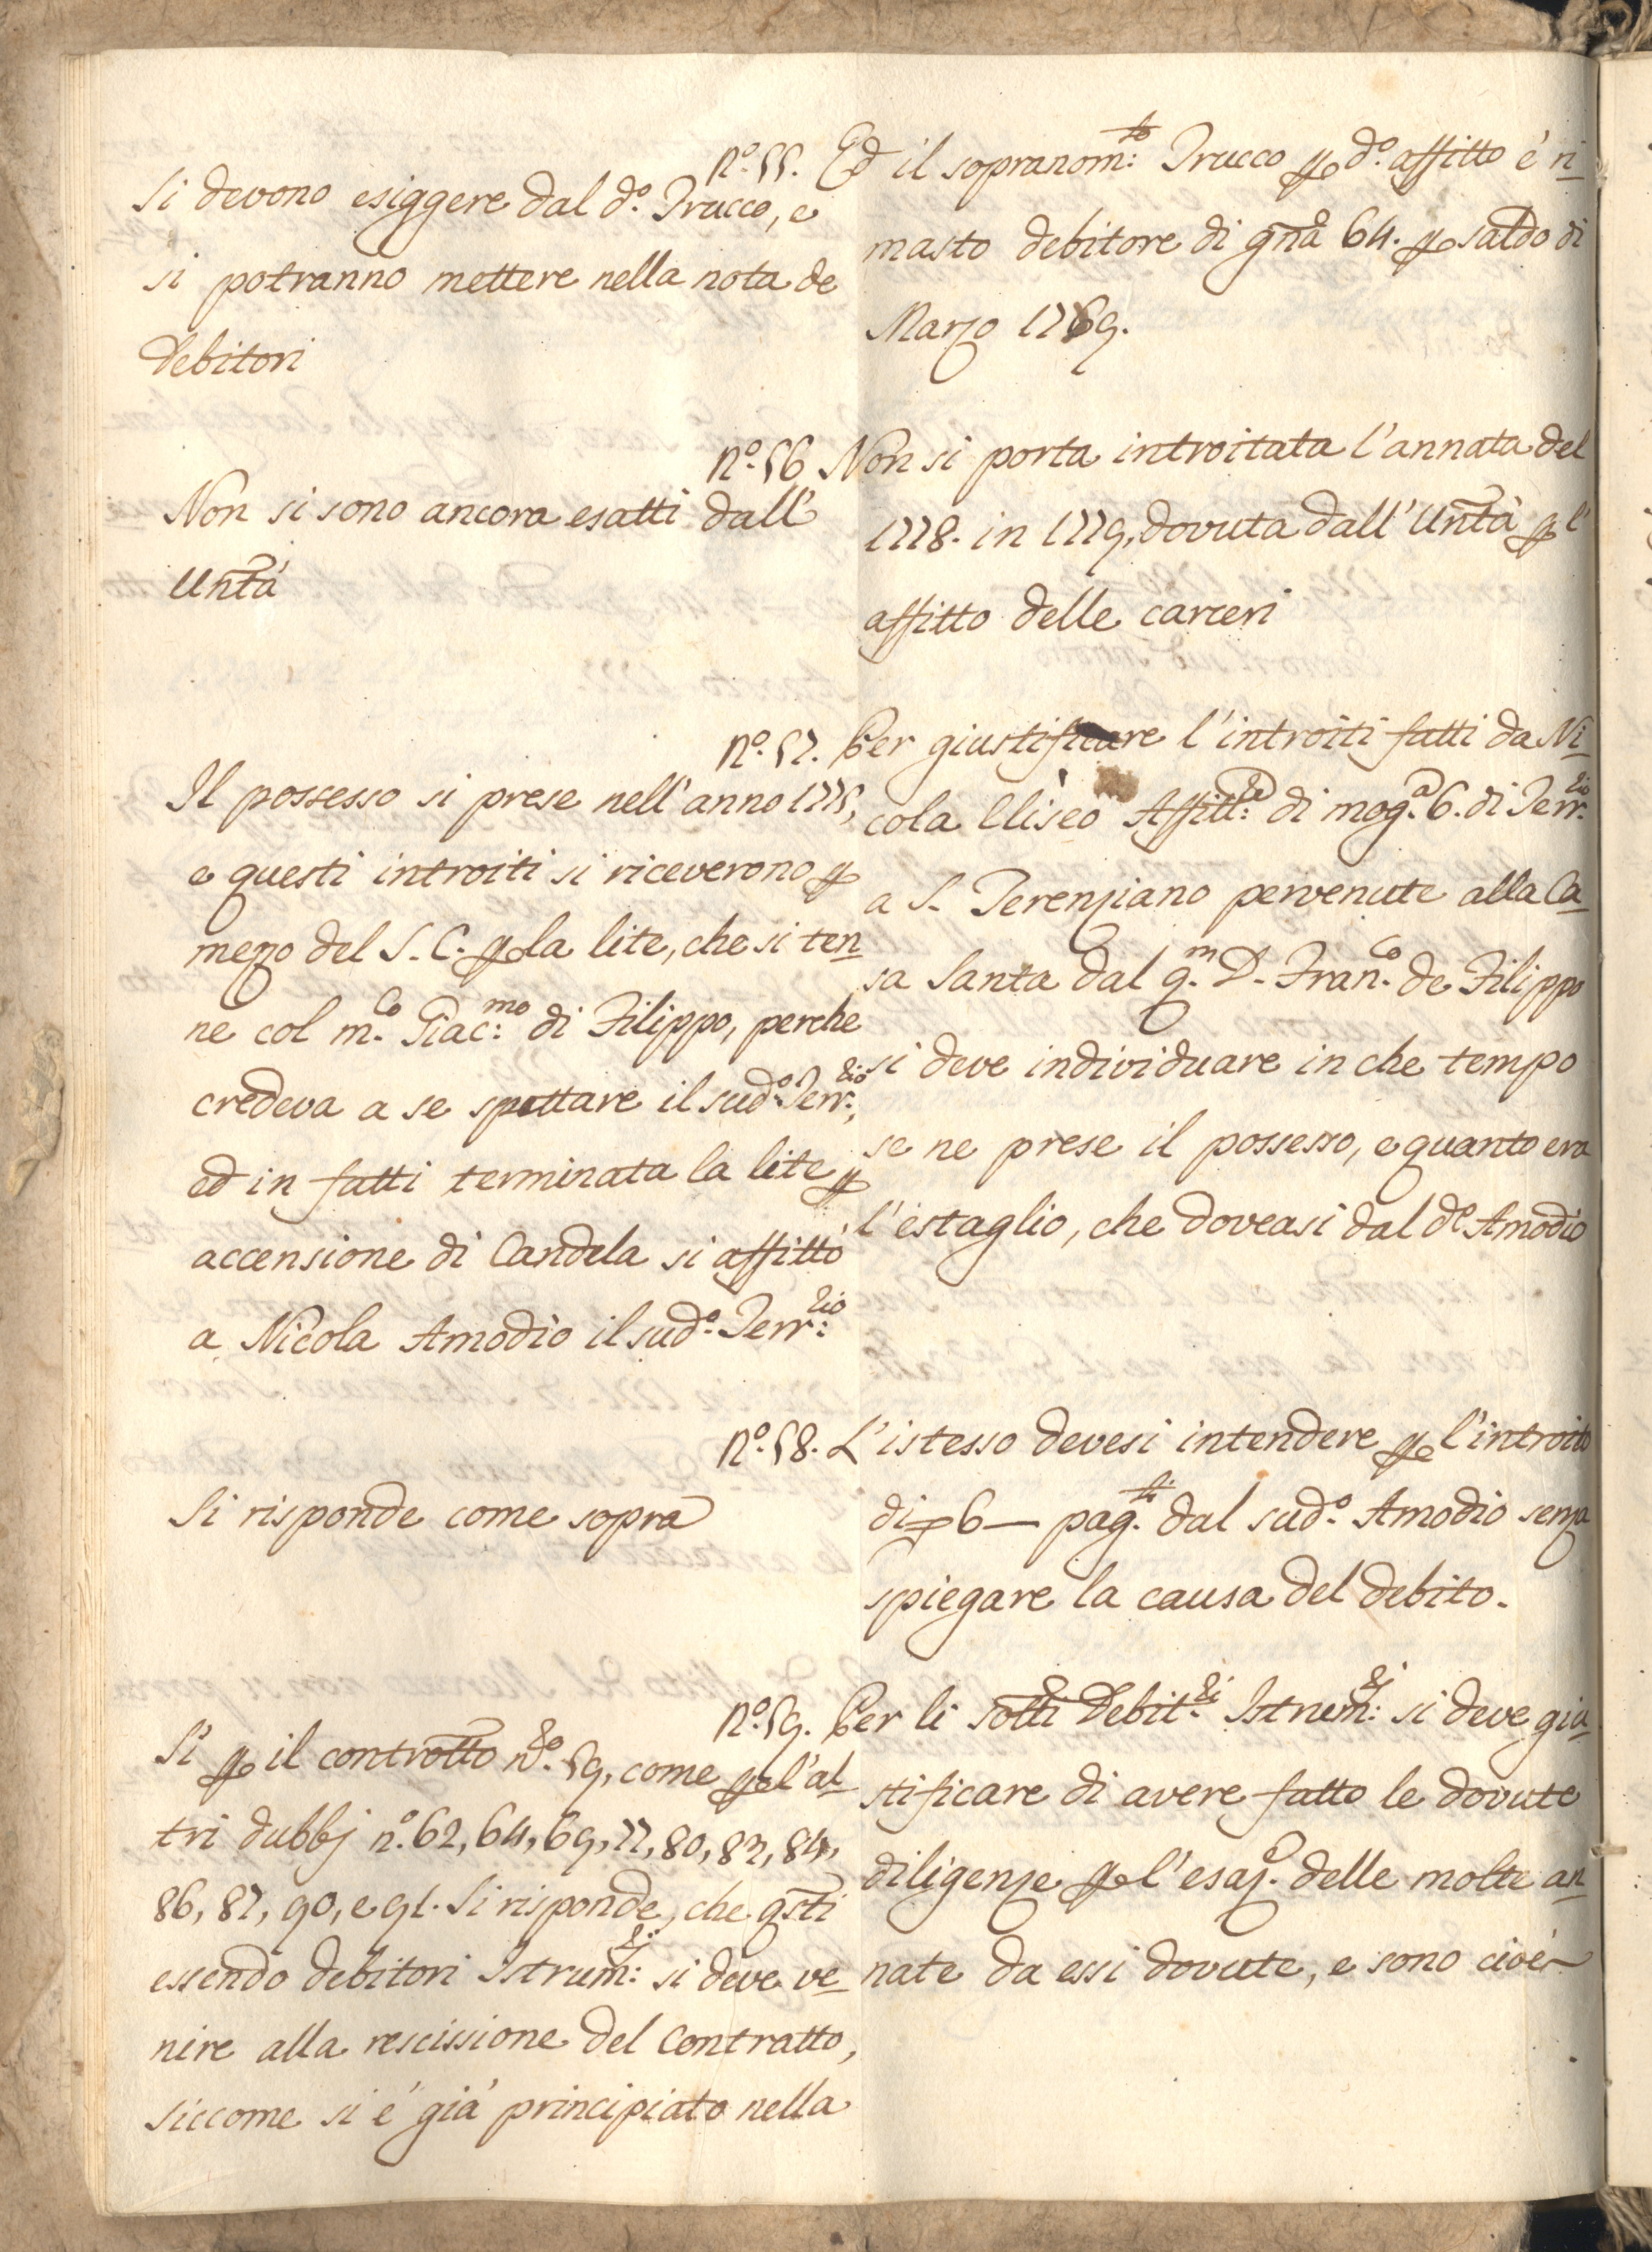 N.° 55. Ed il sopranom:to Trucco p d.° affitto é ri
masto debitore di gña 64. p saldo di
Marzo 1769.
Si devono esiggere dal d.° Trucco, e
si potranno mettere nella nota de
debitori
N.° 56 Non si porta introitata l'annata del
1778. in 1779, dovuta dall' Unta p l'
affitto delle carceri
Non si sono ancora esatti dall'
Untà
N.° 57. Per giustificare l'introiti fatti da Ni
cola Eliseo Affitt:e di mog.a 6. di Terr:rio
a S. Terenziano pervenute alla Ca
sa Santa dal q.m D. Fran.co de Filippo
si deve individuare in che tempo
se ne prese il possesso, e quanto era
l'estaglio, che doveasi dal d.° Amodio
Il possesso si prese nell'anno 1775,
e questi introiti si riceverono p
mezo del S. C. p la lite, che si ten
ne col m.co Giac:mo di Filippo, perche
credeva a se spettare il sud.° Terr:rio,
ed in fatti terminata la lite p
accensione di Candela si affittò
a Nicola Amodio il sud.° Terr:rio
N.° 58. L'istesso devesi intendere p l'introito
di 6— pag.ti dal sud.° Amodio senza
spiegare la causa del debito.
Si risponde come sopra
N.° 59. Per li sotti Debit.ri Istrum:li si deve giu
stificare di avere fatto le dovute
diligenze p l'esaz.e delle molte an
nate da essi dovute, e sono cioè
Si p il controtto n.ro 59, come p l'al
tri dubbj n.° 62, 64, 69, 77, 80, 83, 84,
86, 87, 90, e 91. Si risponde, che qsti
essendo debitori Istrum:li si deve ve
nire alla rescissione del Contratto,
siccome si é già principiato nella